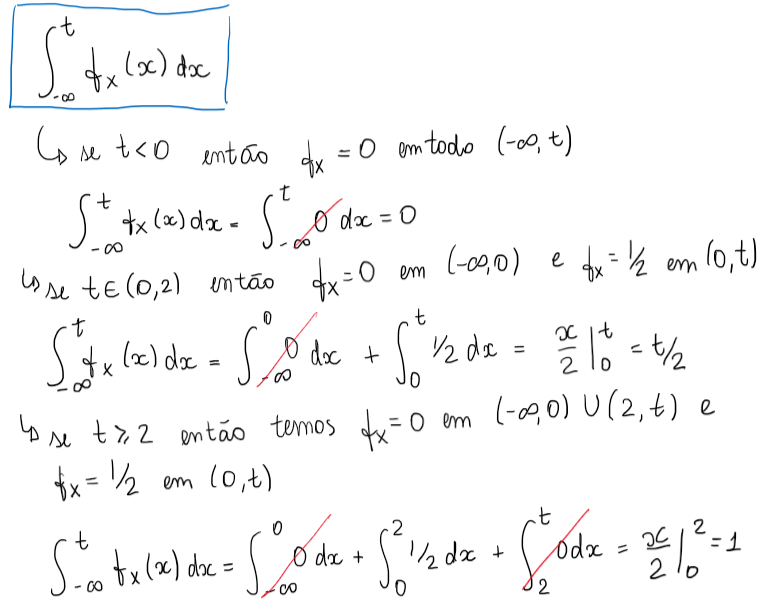 ∫_{-∞}^{t} f_X(x) dx
↳ se t<0 então f_X = 0 em todo (-∞, t)
∫_{-∞}^{t} f_X(x) dx = ∫_{-∞}^{t} 0 dx = 0
↳ se t ∈ (0,2) então f_X = 0 em (-∞,0) e f_X = 1/2 em (0,t)
∫_{-∞}^{t} f_X(x) dx = ∫_{-∞}^{0} 0 dx + ∫_{0}^{t} 1/2 dx = x/2 |_{0}^{t} = t/2
↳ se t ⩾ 2 então temos f_X = 0 em (-∞,0) ∪ (2,t) e
f_X = 1/2 em (0,t)
∫_{-∞}^{t} f_X(x) dx = ∫_{-∞}^{0} 0 dx + ∫_{0}^{2} 1/2 dx + ∫_{2}^{t} 0 dx = x/2 |_{0}^{2} = 1